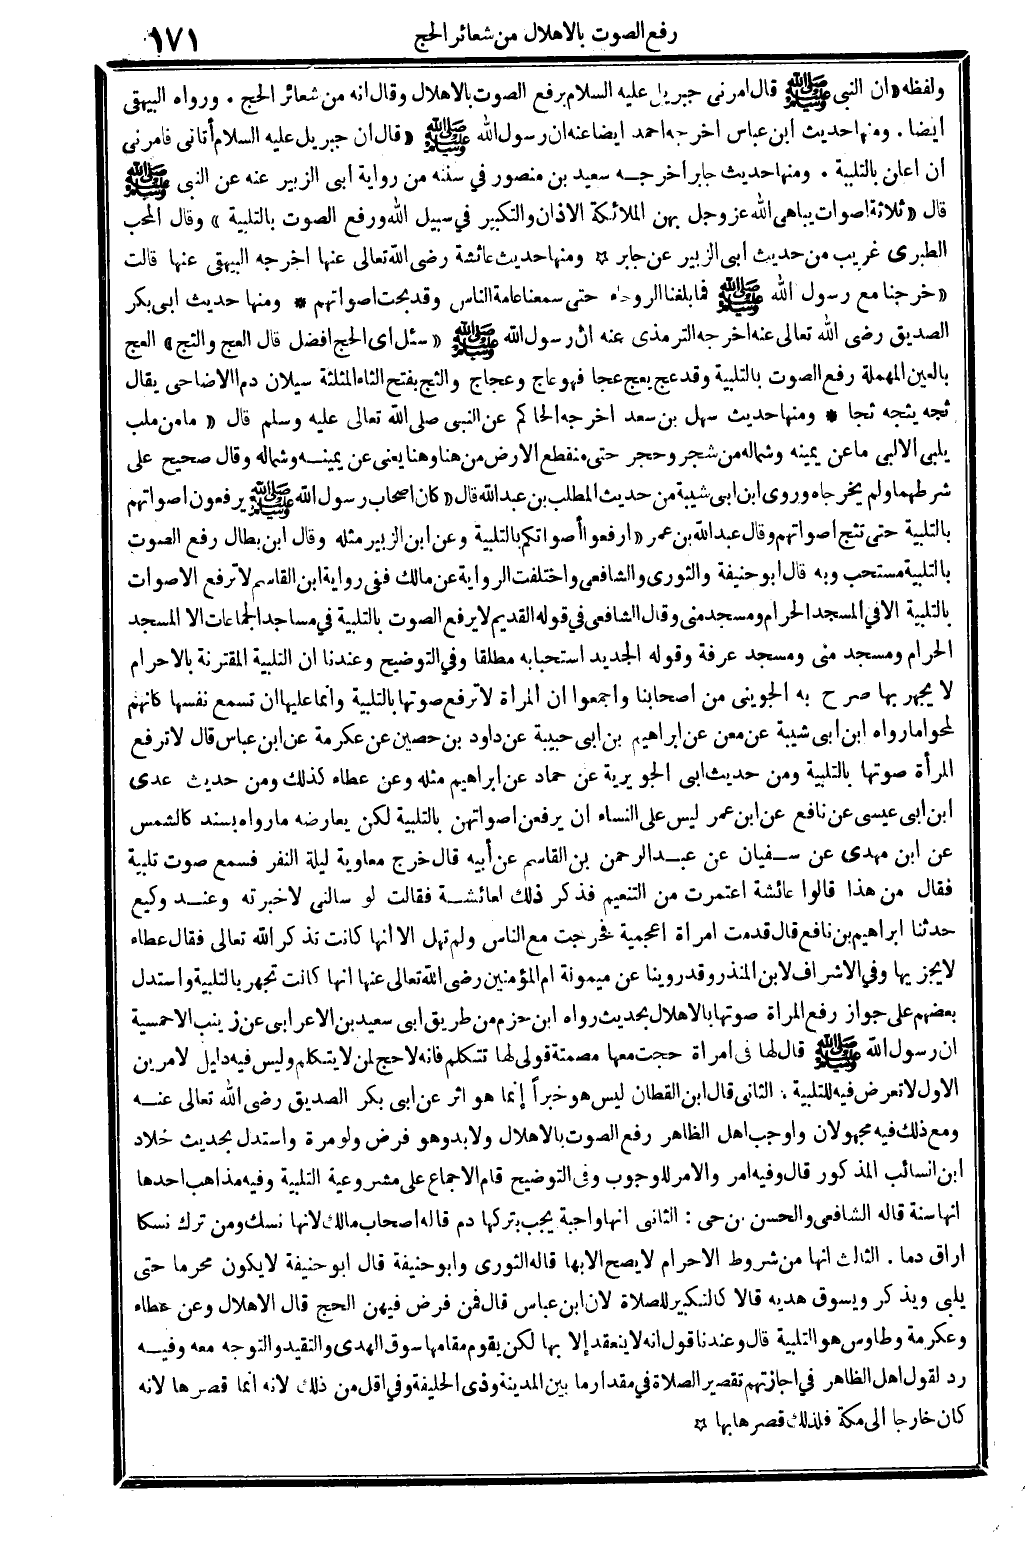 رفع الصوت بالاهلال من شعائر الحج ١٧١
ولفظه «ان النبى ﷺ قال امرنى جبريل عليه السلام برفع الصوت بالاهلال وقال انه من شعائر الحج . ورواه البيهقى
ايضا . ومنها حديث ابن عباس اخرجه احمد ايضا عنه ان رسول الله ﷺ «قال ان جبريل عليه السلام أتانى فامرنى
أن اعلن بالتلبية . ومنها حديث جابر أخرجه سعيد بن منصور في سننه من رواية أبى الزبير عنه عن النبى ﷺ
قال «ثلاثة اصوات يباهى الله عز وجل بهن الملائكة الاذان والتكبير في سبيل الله ورفع الصوت بالتلبية» وقال المحب
الطبرى غريب من حديث ابى الزبير عن جابر ☆ ومنها حديث عائشة رضى الله تعالى عنها اخرجه البيهقى عنها قالت
«خرجنا مع رسول الله ﷺ فما بلغنا الروحاء حتى سمعنا عامة الناس وقد بحت اصواتهم * ومنها حديث ابى بكر
الصديق رضى الله تعالى عنه اخرجه الترمذى عنه ان رسول الله ﷺ «سئل اى الحج افضل قال العج والثج» العج
بالعين المهملة رفع الصوت بالتلبية وقد عج يعج عجا فهو عاج وعجاج والثج بفتح الثاء المثلثة سيلان دم الاضاحى يقال
ثجه يثجه ثجا * ومنها حديث سهل بن سعد اخرجه الحاكم عن النبى صلى الله تعالى عليه وسلم قال «مامن ملب
يلبى الا لبى ما عن يمينه وشماله من شجر وحجر حتى منقطع الارض من هنا وهنا يعنى عن يمينه وشماله وقال صحيح على
شرطهما ولم يخرجاه وروى ابن ابى شيبة من حديث المطلب بن عبد الله قال «كان اصحاب رسول الله ﷺ يرفعون اصواتهم
بالتلبية حتى تثج اصواتهم وقال عبد الله بن عمر «ارفعوا أصواتكم بالتلبية وعن ابن الزبير مثله وقال ابن بطال رفع الصوت
بالتلبية مستحب وبه قال ابو حنيفة والثورى والشافعى واختلفت الرواية عن مالك ففى رواية ابن القاسم لا ترفع الاصوات
بالتلبية الا في المسجد الحرام ومسجد منى وقال الشافعى في قوله القديم لا يرفع الصوت بالتلبية في مساجد الجماعات الا المسجد
الحرام ومسجد منى ومسجد عرفة وقوله الجديد استحبابه مطلقا وفي التوضيح وعندنا ان التلبية المقترنة بالاحرام
لا يجهر بها صرح به الجوينى من اصحابنا واجمعوا ان المرأة لا ترفع صوتها بالتلبية وانما عليها ان تسمع نفسها كانهم
لمحوا ما رواه ابن ابى شيبة عن معن عن ابراهيم بن ابى حبيبة عن داود بن حصين عن عكرمة عن ابن عباس قال لا ترفع
المرأة صوتها بالتلبية ومن حديث ابى الجويرية عن حماد عن ابراهيم مثله وعن عطاء كذلك ومن حديث عدى
ابن ابى عيسى عن نافع عن ابن عمر ليس على النساء ان يرفعن اصواتهن بالتلبية لكن يعارضه مارواه بسند كالشمس
عن ابن مهدى عن سفيان عن عبد الرحمن بن القاسم عن أبيه قال خرج معاوية ليلة النفر فسمع صوت تلبية
فقال من هذا قالوا عائشة اعتمرت من التنعيم فذكر ذلك لعائشة فقالت لو سالنى لاخبرته وعند وكيع
حدثنا ابراهيم بن نافع قال قدمت امرأة اعجمية فخرجت مع الناس ولم تهل الا انها كانت تذكر الله تعالى فقال عطاء
لا يجزيها وفي الاشراف لابن المنذر وقد روينا عن ميمونة ام المؤمنين رضى الله تعالى عنها انها كانت تجهر بالتلبية واستدل
بعضهم على جواز رفع المرأة صوتها بالاهلال بحديث رواه ابن حزم من طريق ابى سعيد بن الاعرابى عن زينب الاحمسية
ان رسول الله ﷺ قال لها فى امرأة حجت معها مصمتة قولى لها تتكلم فانه لا حج لمن لا يتكلم وليس فيه دليل لامرين
الاول لا تعرض فيه للتلبية . الثانى قال ابن القطان ليس هو خبراً إنما هو اثر عن ابى بكر الصديق رضى الله تعالى عنه
ومع ذلك فيه مجهولان واوجب اهل الظاهر رفع الصوت بالاهلال ولابد وهو فرض ولو مرة واستدل بحديث خلاد
ابن السائب المذكور قال وفيه امر والامر للوجوب وفى التوضيح قام الاجماع على مشروعية التلبية وفيه مذاهب احدها
انها سنة قاله الشافعى والحسن بن حى : الثانى انها واجبة يجب بتركها دم قاله اصحاب مالك لانها نسك ومن ترك نسكا
اراق دما . الثالث انها من شروط الاحرام لا يصح الا بها قاله الثورى وابو حنيفة قال ابو حنيفة لا يكون محرما حتى
يلبى ويذكر ويسوق هديه قالا كالتكبير للصلاة لان ابن عباس قال فمن فرض فيهن الحج قال الاهلال وعن عطاء
وعكرمة وطاوس هو التلبية قال وعندنا قول انه لا ينعقد إلا بها لكن يقوم مقامها سوق الهدى والتقيد والتوجه معه وفيه
رد لقول اهل الظاهر في اجازتهم تقصير الصلاة في مقدار ما بين المدينة وذى الحليفة وفي اقل من ذلك لانه انما قصرها لانه
كان خارجا الى مكة فلذلك قصرها بها ☆